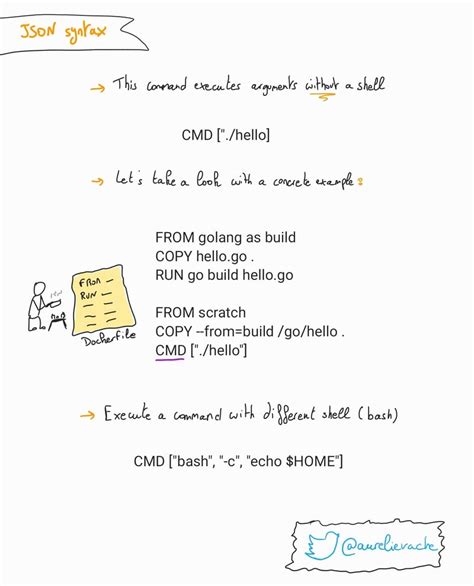 JSON syntax
→ This command executes arguments without a shell
CMD ["./hello]
→ Let's take a look with a concrete example :
FROM golang as build
COPY hello.go .
RUN go build hello.go
FROM
RUN
Dockerfile
FROM scratch
COPY --from=build /go/hello .
CMD ["./hello"]
→ Execute a command with different shell (bash)
CMD ["bash", "-c", "echo $HOME"]
@aurelievache